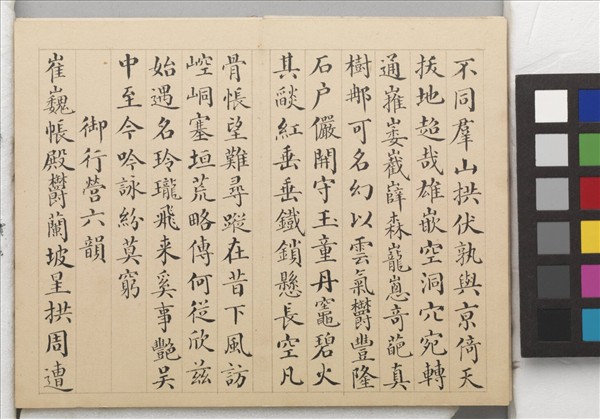 不同羣山拱伏孰與京倚天
拔地超哉雄嵌空洞穴宛轉
通嶊崣嶻嶭森巃嵸奇葩真
樹那可名幻以雲氣欝豐隆
石户儼開守玉童丹竈碧火
其燄紅垂垂鐵鎖懸長空凡
骨悵望難尋蹤在昔下風訪
崆峒塞垣荒略傳何從欣兹
始遇名玲瓏飛来奚事艷吴
中至今吟詠紛莫窮
御行營六韻
崔巍帳殿欝蘭坡星拱周遭